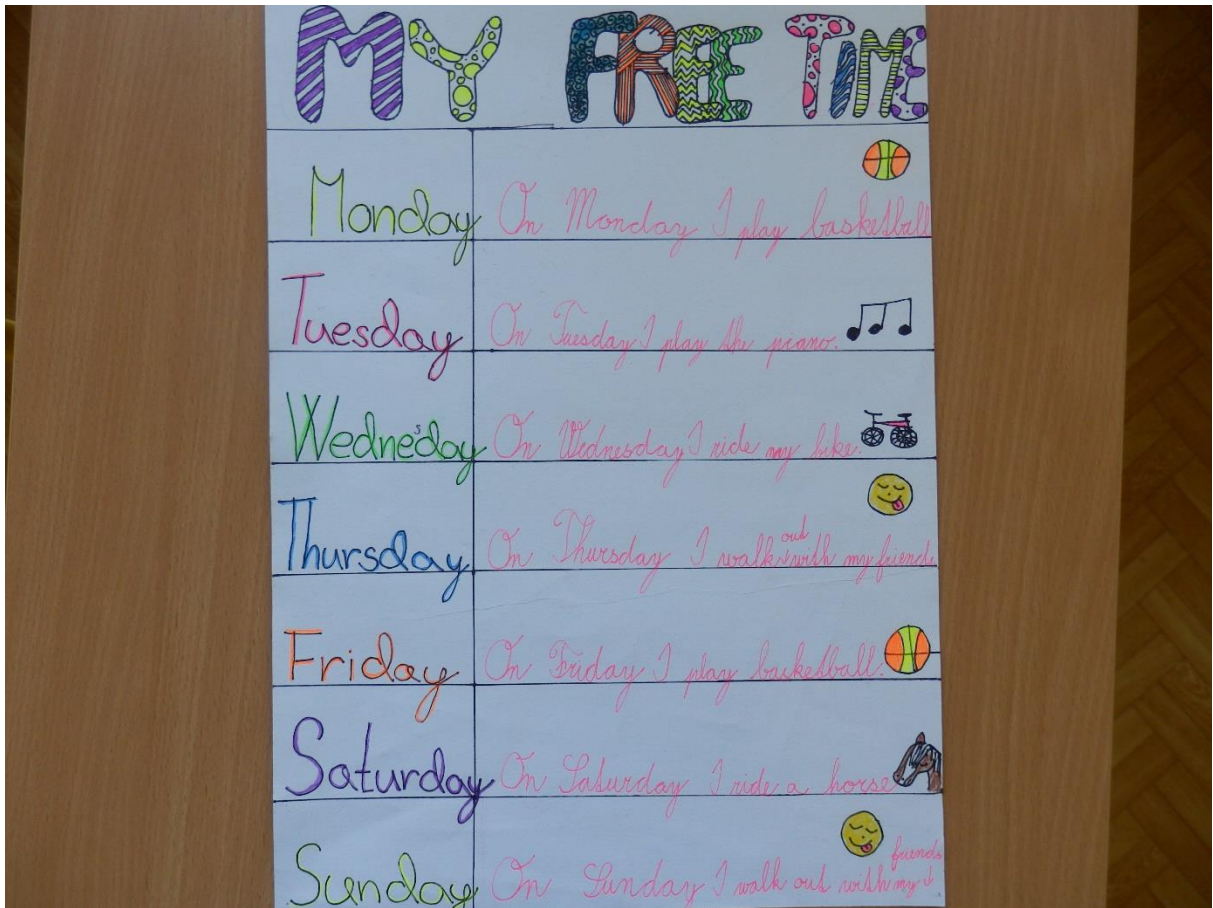 MY FREE TIME
Monday On Monday I play basketball
Tuesday On Tuesday I play the piano.
Wednesday On Wednesday I ride my bike.
Thursday On Thursday I walk out with my friends
Friday On Friday I play backetball.
Saturday On Saturday I ride a horse
Sunday On Sunday I walk out with my friends